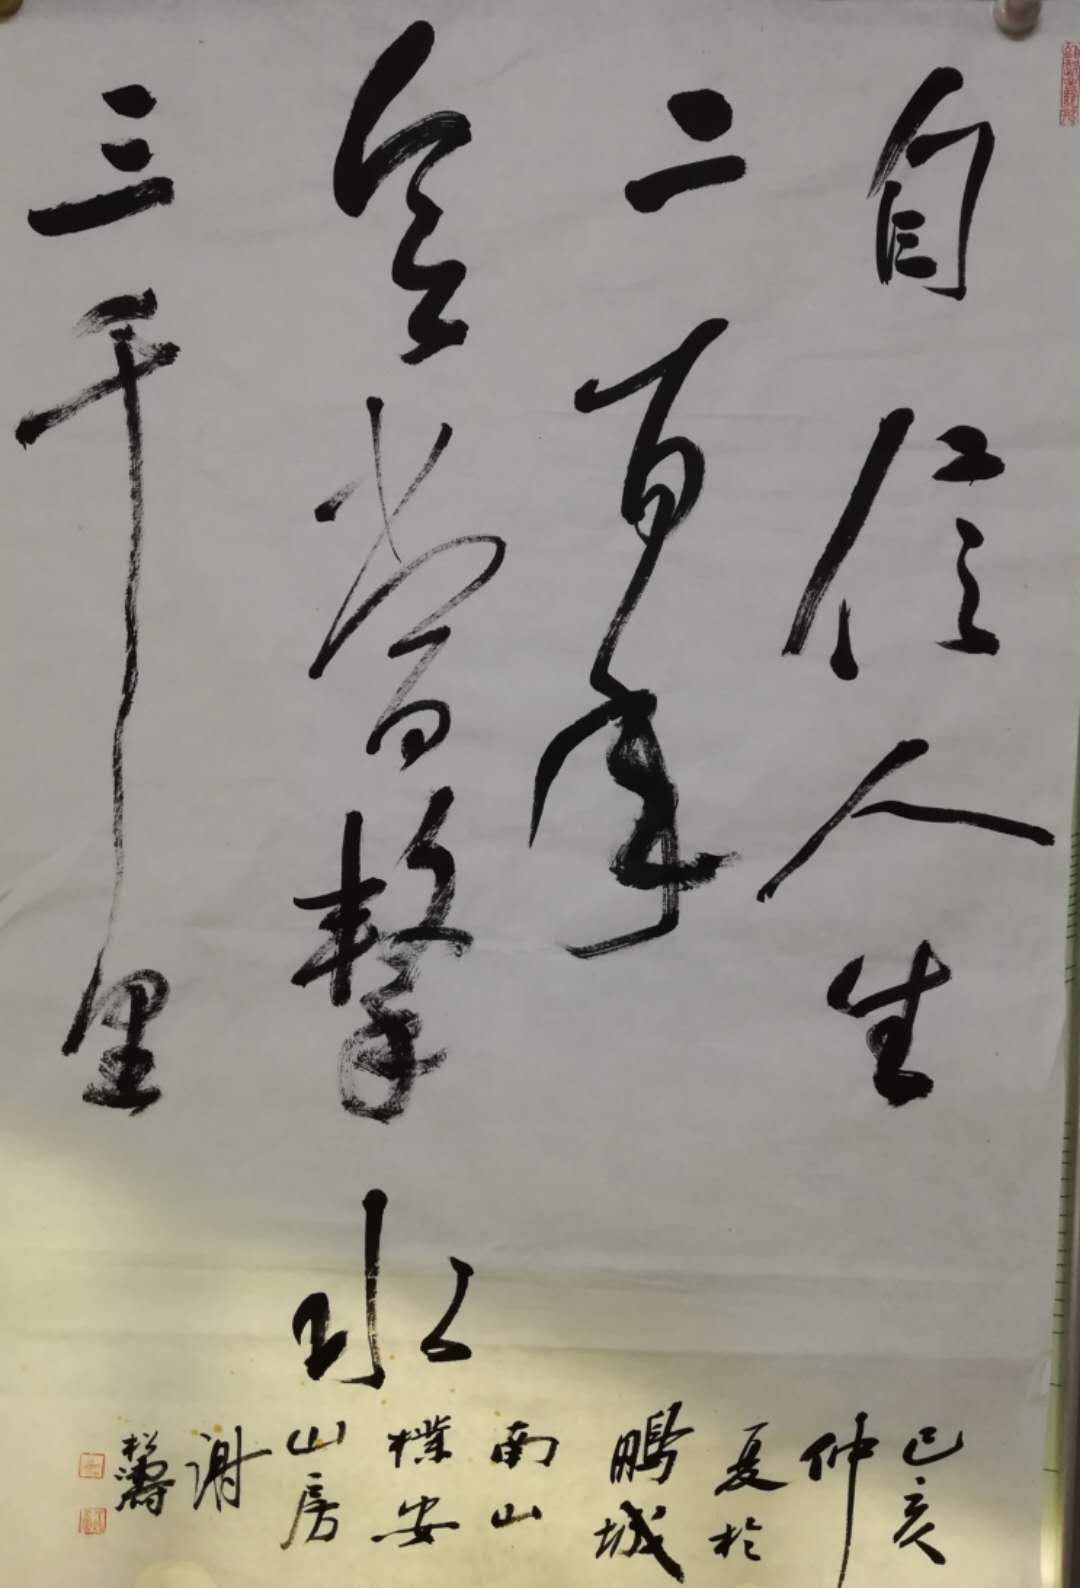 自信人生
二百年
会当击水
三千里
己亥
仲
夏於
鵬城
南山
樸安
山房
谢
松涛